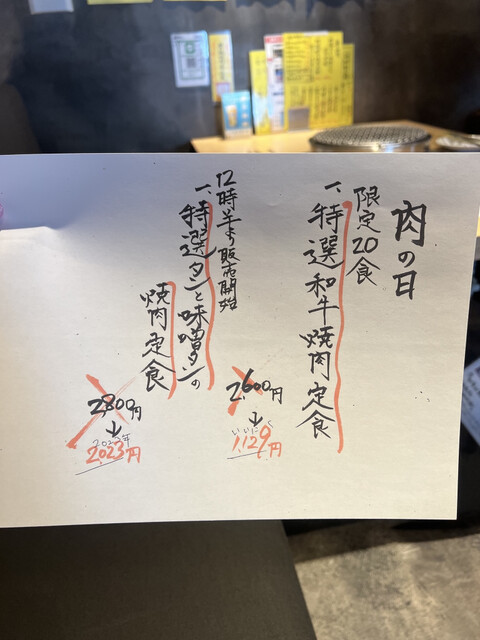 肉の日
限定20食
一、特選和牛焼肉定食
2,600円
↓
いいにく
1,129円
12時半より販売開始
一、特選タンと味噌タンの
焼肉定食
2,800円
↓
2023年
2023円